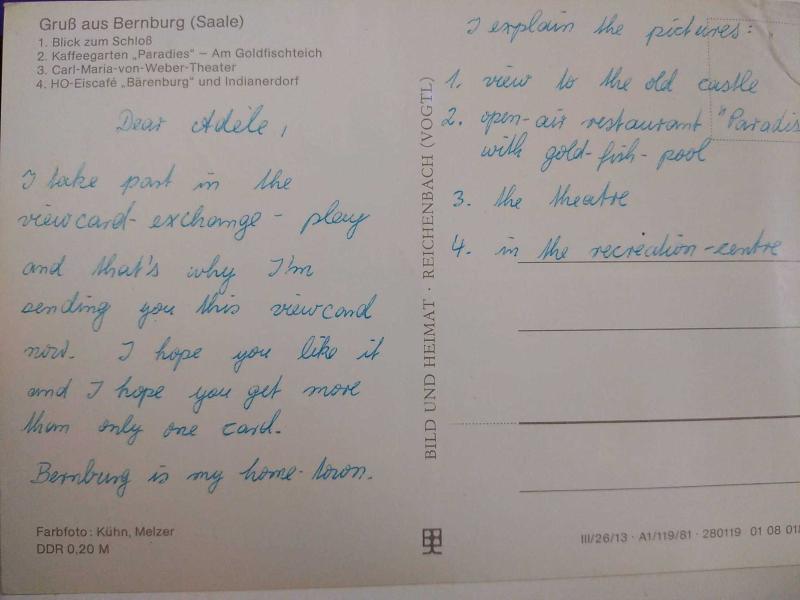 Gruß aus Bernburg (Saale)
1. Blick zum Schloß
2. Kaffeegarten „Paradies" – Am Goldfischteich
3. Carl-Maria-von-Weber-Theater
4. HO-Eiscafé „Bärenburg" und Indianerdorf
Dear Adèle,
I take part in the
viewcard-exchange-play
and that's why I'm
sending you this viewcard
now. I hope you like it
and I hope you get more
than only one card.
Bernburg is my home-town.
Farbfoto: Kühn, Melzer
DDR 0,20 M
BILD UND HEIMAT · REICHENBACH (VOGTL)
I explain the pictures:
1. view to the old castle
2. open-air restaurant "Paradis
with gold-fish-pool
3. the theatre
4. in the recreation-centre
III/26/13 · A1/119/81 · 280119 01 08 018